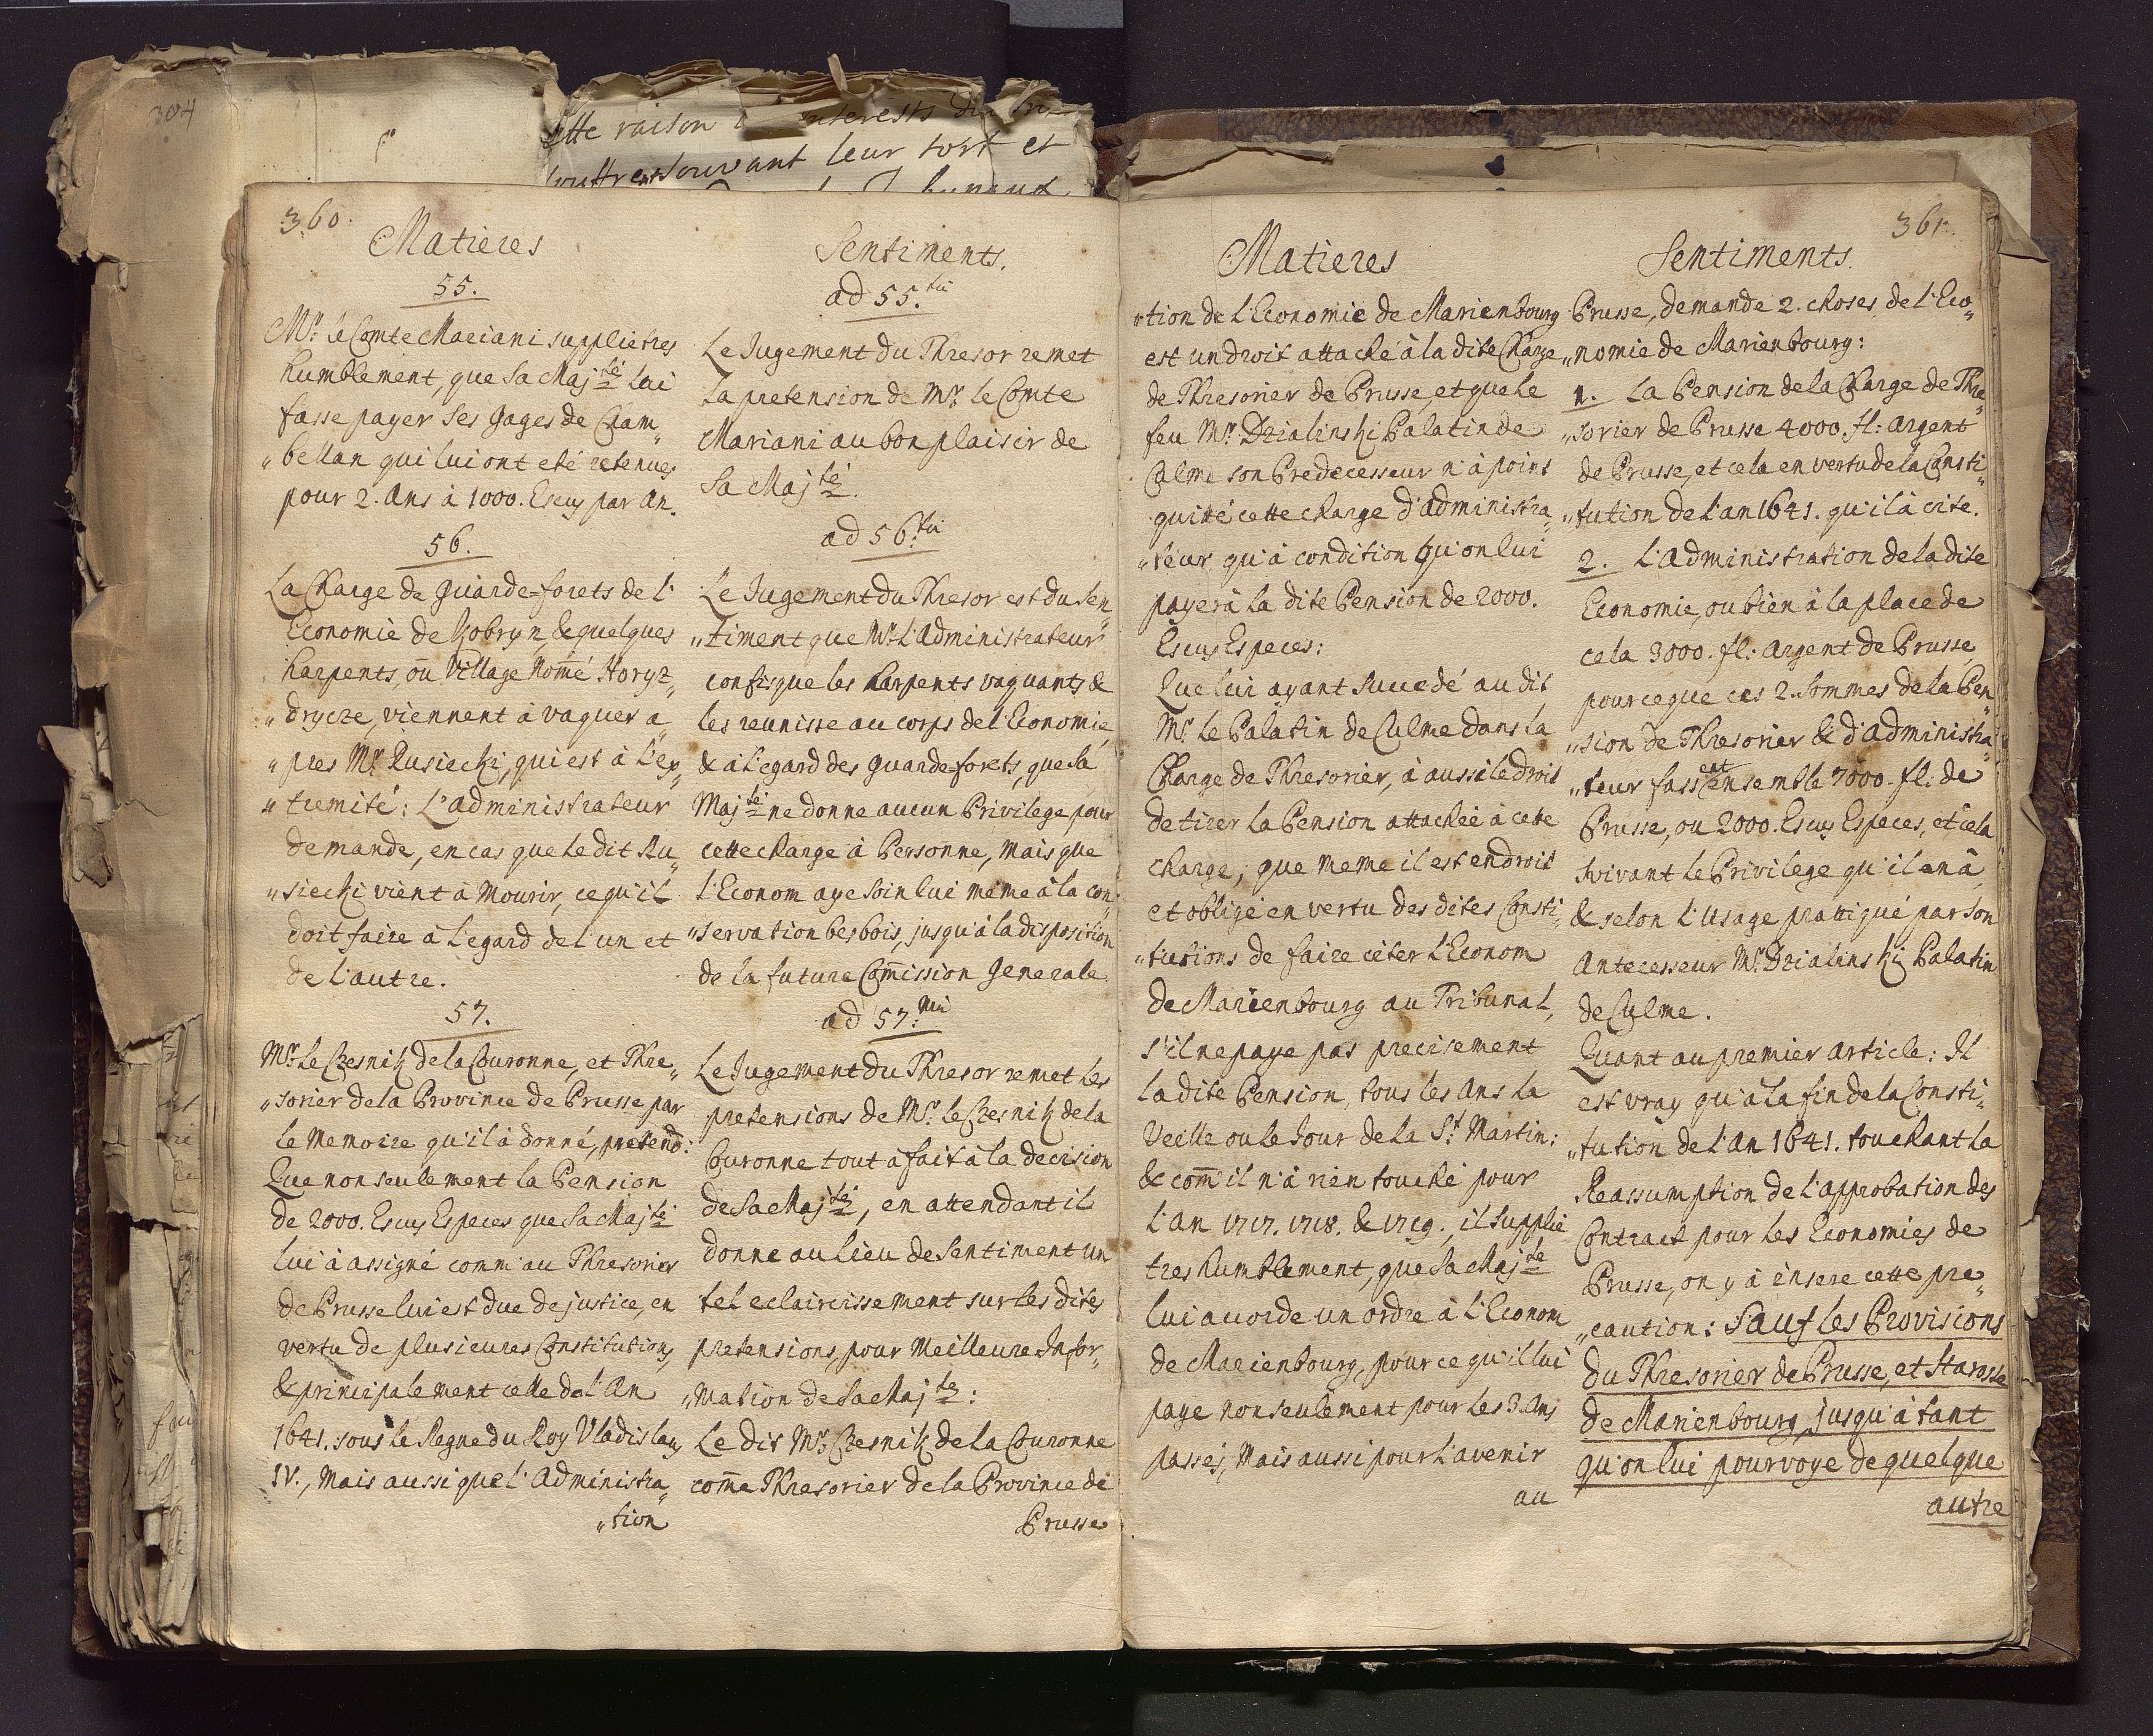 304
cette raison
souvant leur tort et
360.
Matieres
55.
Mr. le Comte Mariani supplie tres
humblement, que Sa Majté lui
fasse payer ses Gages de Cham„
„bellan qui lui ont eté retenues
pour 2. Ans à 1000. Escus par An.
56.
La Charge de guarde=forets de l'
Economie de Kobryn, & quelques
harpents, ou Village Nom̄é Horyz„
„drycze, viennent à vaquer a„
„pres Mr. Rusiecki, qui est à l'ex„
„tremité: L'administrateur
demande, en cas que le dit Ru„
„siecki vient à Mourir, ce qu'il
doit faire à l'egard de l'un et
de l'autre.
57.
Mr. le Czesnik de la Couronne, et Thre„
„sorier de la Province de Prusse par
le Memoire qu'il à donné, pretend:
Que non seulement la Pension
de 2000. Escus Especes que Sa Majté
lui à assigné comm'au Thresorier
de Prusse lui est due de justice, en
vertu de plusieures Constitutions,
& principalement celle de l'An
1641. sous le Regne du Roy Vladislaus
IV., Mais aussi que l'Administra„
„tion
Sentiments.
ad 55.tū
Le Jugement du Thresor remet
la pretension de Mr. le Comte
Mariani au bon plaisir de
Sa Majté.
ad 56.tū
Le Jugement du Thresor est du Sen„
„timent que Mr. l'Administrateur
confisque les harpents vaquants &
les reunisse au corps de l'Economie,
& à l'egard des guarde=forets, que Sa
Majté ne donne aucun Privilege pour
cette charge à Personne, Mais que
l'Econom aye Soin lui meme à la con„
„servation des bois, jusqu'à la disposition
de la future Com̄ission Generale.
ad 57.mū
Le Jugement du Thresor remet les
pretensions de Mr. le Czesnik de la
Couronne tout à fait à la decision
de Sa Majté, en attendant il
donne au lieu de Sentiment un
tel eclaircissement sur les dites
pretensions, pour Meilleure Infor„
„mation de Sa Majté:
Le dit Mr. Czesnik de la Couronne
com̄e Thresorier de la Province de
Prusse
361.
Matieres
„tion de l'Economie de Marienbourg
est un droit attaché à la dite Charge
de Thresorier de Prusse, et que le
feu Mr. Dzialinski Palatin de
Culme son Predecesseur n'à point
quitté cette charge d'administra„
„teur qu'à condition qu'on lui
payerà la dite Pension de 2000.
Escus Especes:
Que lui ayant Succedé au dit
Mr. le Palatin de Culme dans la
Charge de Thresorier, à aussi le droit
de tirer la Pension attachée à cette
charge; que meme il est en droit
et obligé en vertu des dites Consti„
„tutions de faire citer l'Econom
de Marienbourg au Tribunal,
s'il ne paye pas precisement
la dite Pension, tous les Ans la
Veille ou le Jour de la St. Martin:
& com̄'il n'à rien touché pour
l'an 1717. 1718. & 1719., il supplie
tres humblement, que Sa Majté
lui accorde un ordre à l'Econom
de Marienbourg, pour ce qu'il lui
paye non seulement pour les 3. Ans
passés, Mais aussi pour l'avenir
au
Sentiments.
Prusse, demande 2. choses de l'Eco„
„nomie de Marienbourg:
1. La Pension de la Charge de Thre„
„sorier de Prusse 4000. fl: argent
de Prusse, et cela en vertu de la Consti„
„tution de l'an 1641. qu'il à cité.
2. L'administration de la dite
Economie, ou bien à la place de
cela 3000. fl: argent de Prusse,
pour ce que ces 2. Sommes de la Pen„
„sion de Thresorier & d'Administra„
„teur fassent ensemble 7000. fl: de
Prusse, ou 2000. Escus Especes, et cela
suivant le Privilege qu'il en à,
& selon l'Usage prattiqué par son
Antecesseur Mr. Dzialinski Palatin
de Culme.
Quant au premier article: Il
est vray qu'à la fin de la Consti„
„tution de l'An 1641. touchant la
Reassumption de l'approbation des
Contract pour les Economies de
Prusse, on y à inseré cette pre„
„caution: Sauf les Provisions
du Thresorier de Prusse, et Staroste
de Marienbourg, jusqu'à tant
qu'on lui pourvoye de quelque
autre